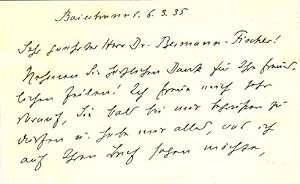 Baierbrunn 6.3.35
Sehr geehrter Herr Dr. Bermann-Fischer!
Nehmen Sie herzlichen Dank für Ihre freund-
lichen Zeilen! Ich freue mich sehr
darauf, Sie bald bei mir begrüßen zu
dürfen u. hebe mir alles, was ich
auf Ihren Brief sagen möchte,